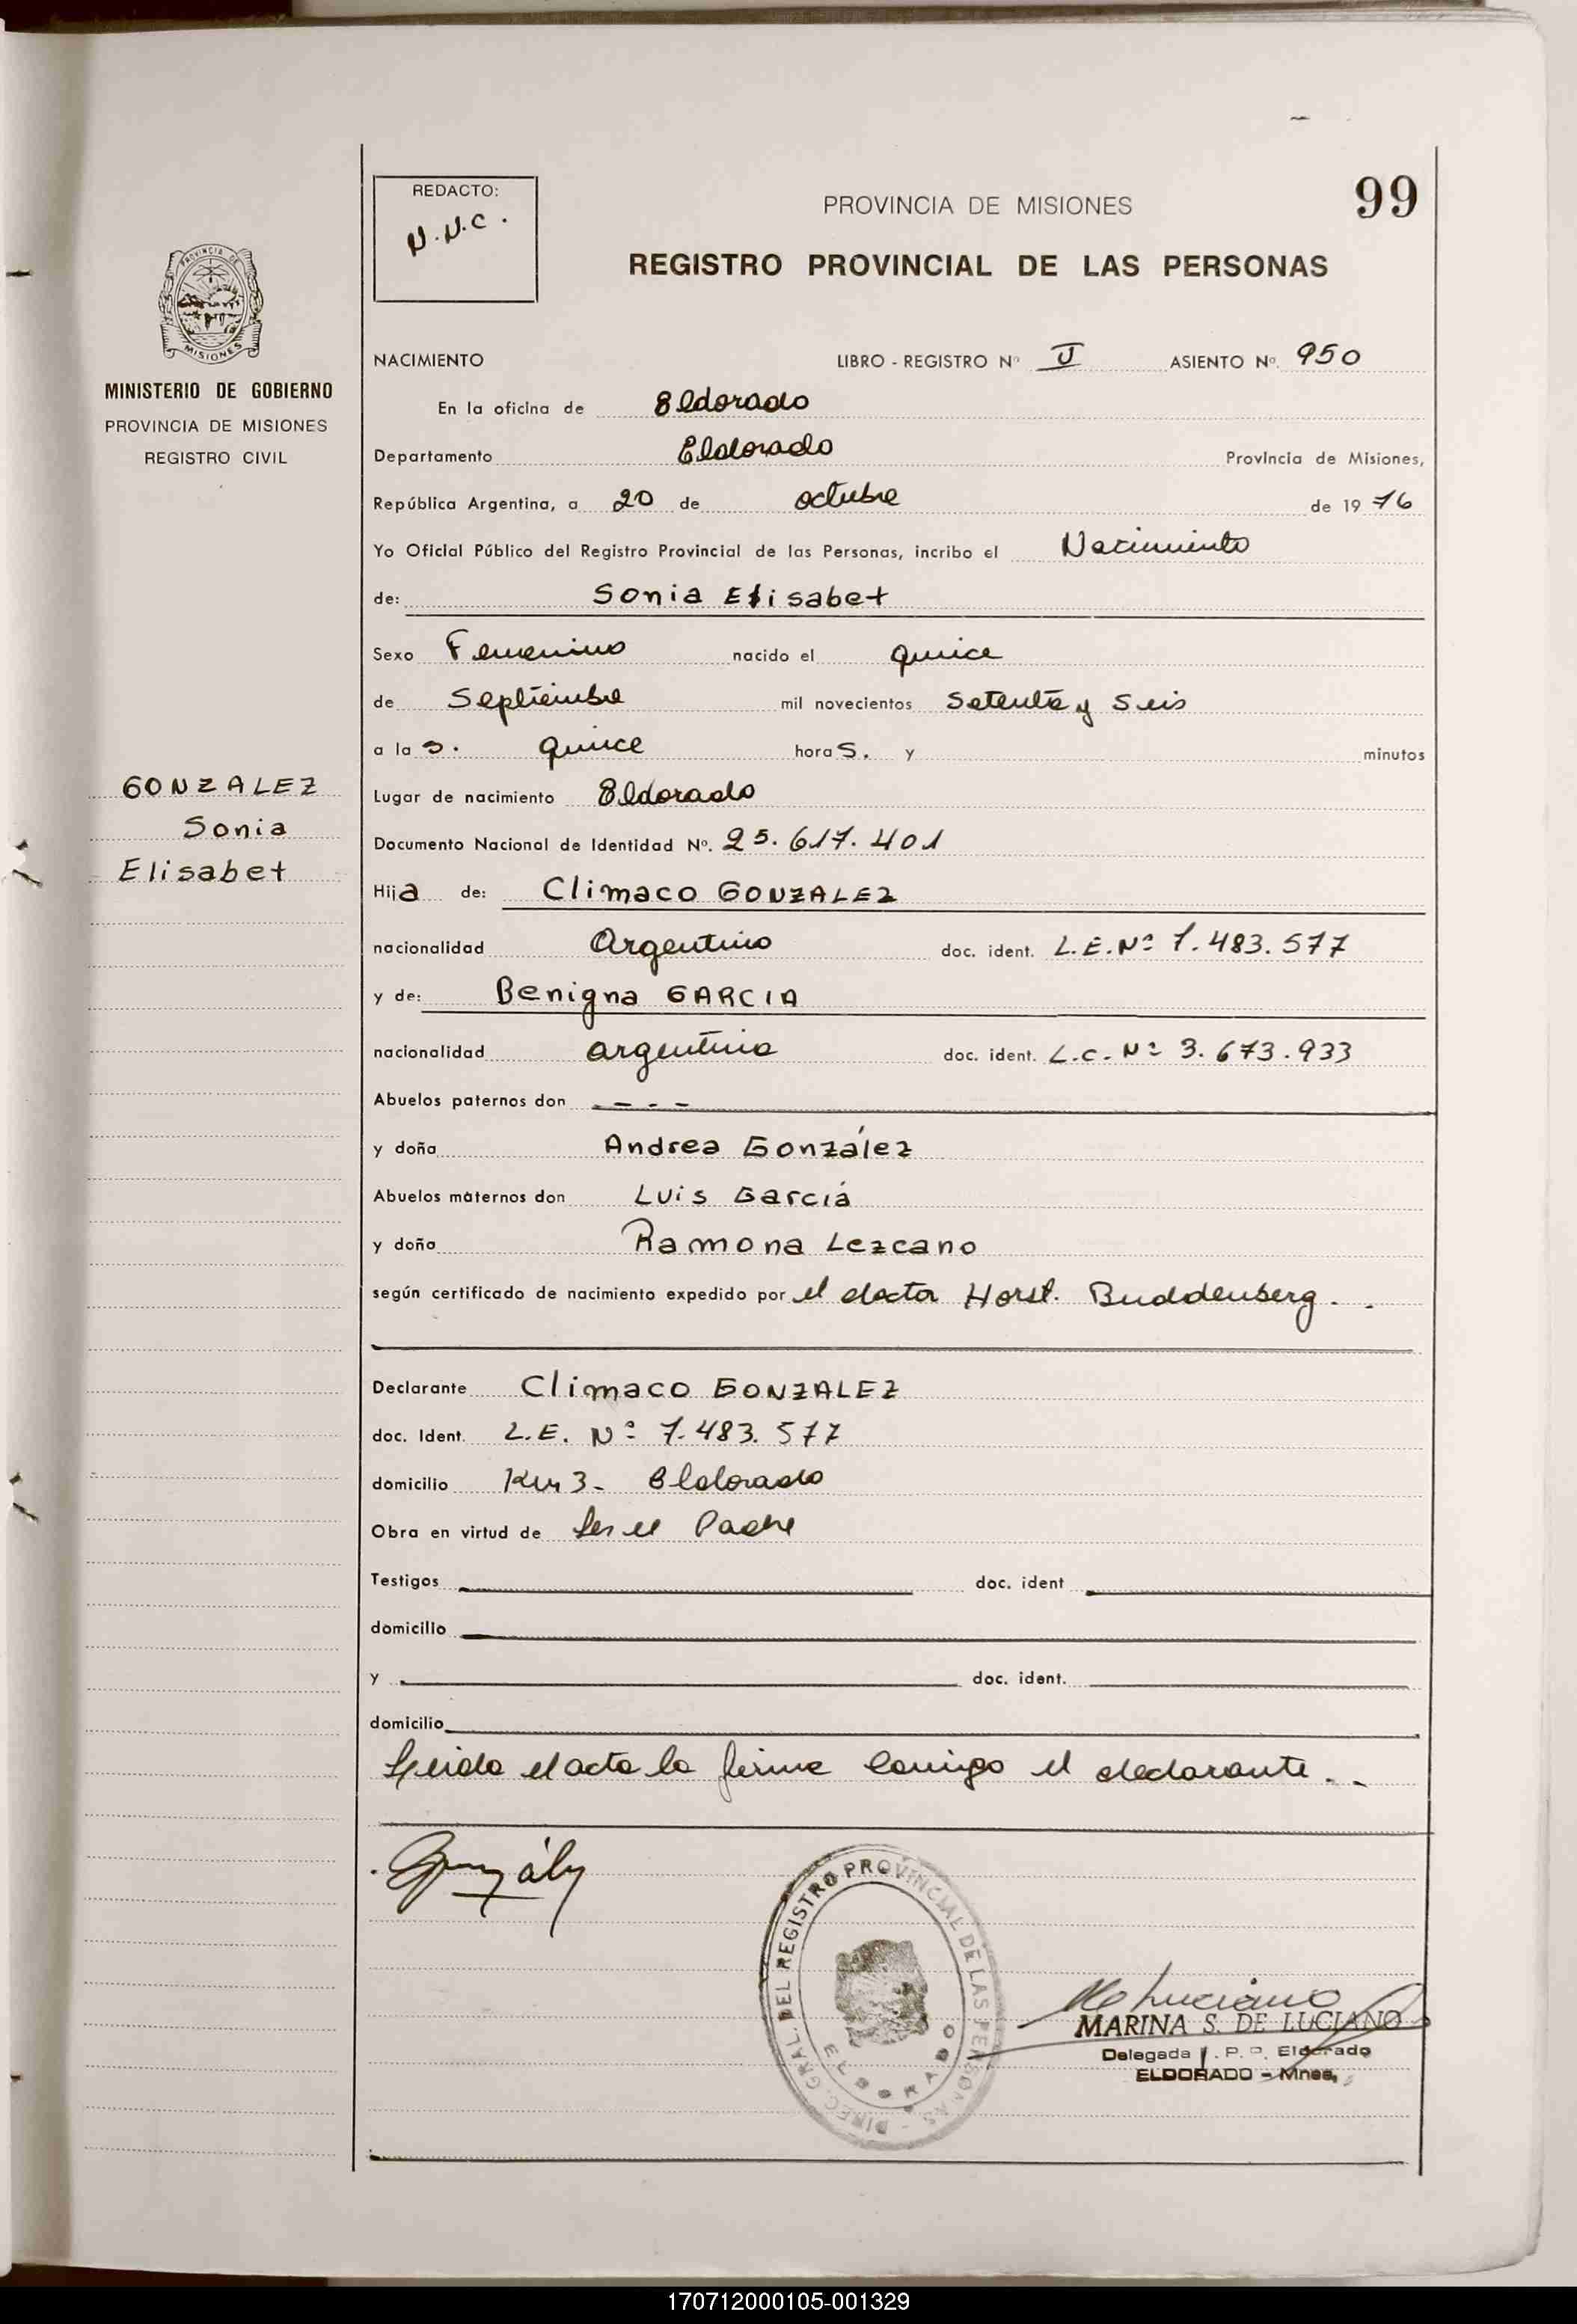 REDACTO:
N.N.C.
PROVINCIA DE MISIONES
99
REGISTRO PROVINCIAL DE LAS PERSONAS
PROVINCIA DE
MISIONES
MINISTERIO DE GOBIERNO
PROVINCIA DE MISIONES
REGISTRO CIVIL
GONZALEZ
Sonia
Elisabet
NACIMIENTO LIBRO - REGISTRO Nº II ASIENTO Nº. 950
En la oficina de Eldorado
Departamento Eldorado Provincia de Misiones,
República Argentina, a 20 de octubre de 19 76
Yo Oficial Público del Registro Provincial de las Personas, incribo el Nacimiento
de: Sonia Elisabet
Sexo Femenino nacido el quice
de Septiembre mil novecientos Setenta y Seis
a la s. quince hora s. y minutos
Lugar de nacimiento Eldorado
Documento Nacional de Identidad Nº. 25.617.401
Hija de: Climaco GONZALEZ
nacionalidad Argentino doc. ident. L.E.Nº 7.483.577
y de: Benigna GARCIA
nacionalidad argentina doc. ident. L.C. Nº 3.673.933
Abuelos paternos don - - -
y doña Andrea González
Abuelos maternos don Luis Garciá
y doña Ramona Lezcano
según certificado de nacimiento expedido por el doctor Horst. Buddenberg. .
Declarante Climaco GONZALEZ
doc. Ident. L.E. Nº 7.483.577
domicilio Km 3- Eldorado
Obra en virtud de Ser el Padre
Testigos doc. ident
domicilio
y doc. ident.
domicilio
Leida el acta la firma conmigo el declarante. -
González
DIREC. GRAL. DEL REGISTRO PROVINCIAL DE LAS PERSONAS -
ELDORADO
de Luciano
MARINA S. DE LUCIANO
Delegada R. P. P. Eldorado
ELDORADO - Mnes,
170712000105-001329